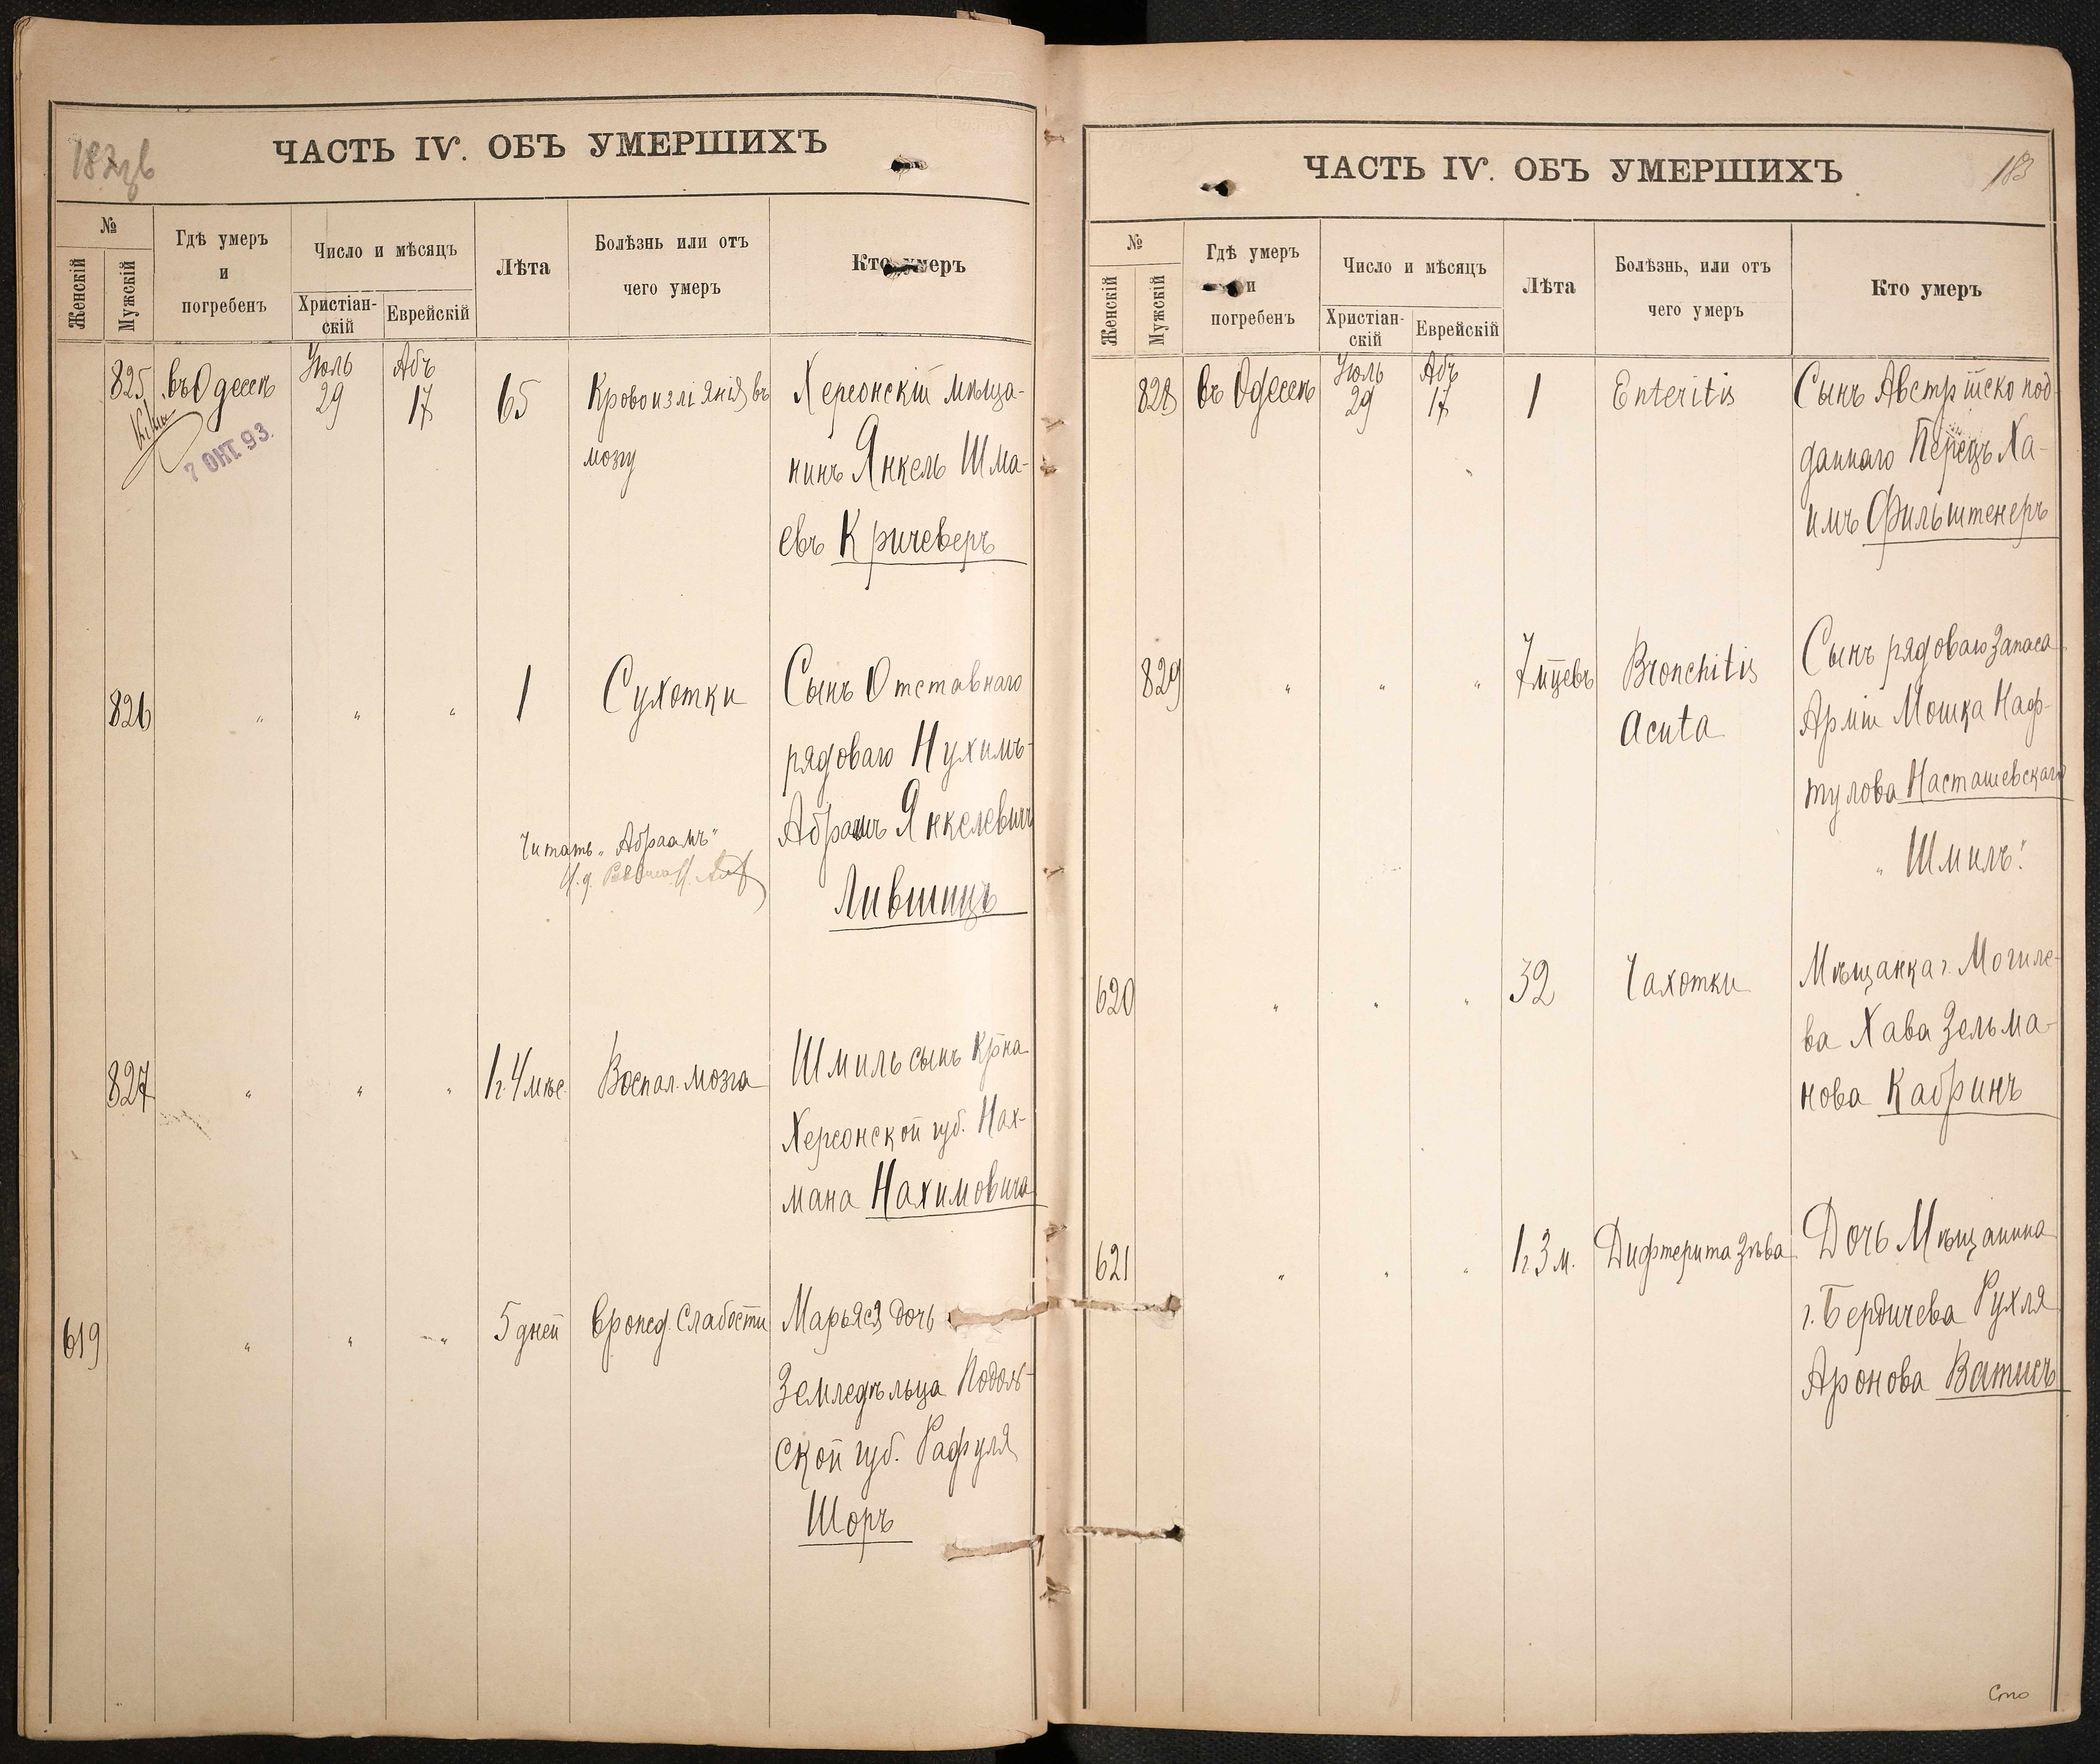 182об
ЧАСТЬ IV. ОБЪ УМЕРШИХЪ
№
Женскій
Мужскій
Гдѣ умеръ
и
погребенъ
Число и мѣсяцъ
Христіан-
скій
Еврейскій
Лѣта
Болѣзнь или отъ
чего умеръ
Кто умеръ
825 въ Одессѣ Іюль 29 Абъ 17 65 Кровоизліянія въ
мозгу
7 ОКТ. 93.
Херсонскій мѣща-
нинъ Янкель Шма-
евъ Кричеверъ
826 " " " 1 Сухотки
Сынъ Отставнаго
рядоваго Нухимъ-
Абрамъ Янкелевичъ
Лившицъ
Читать "Абраамъ"
И. д. Раввина
827 " " " 1 г. 4 мѣс. Воспал. мозга
Шмиль сынъ кр̃на
Херсонской губ. Нах-
мана Нахимовича
619 " " " 5 дней врожд. слабости
Марьяся дочь
Земледѣльца Подоль-
ской губ. Рафуля
Шоръ
183
ЧАСТЬ IV. ОБЪ УМЕРШИХЪ
№
Женскій
Мужскій
Гдѣ умеръ
и
погребенъ
Число и мѣсяцъ
Христіан-
скій
Еврейскій
Лѣта
Болѣзнь, или отъ
чего умеръ
Кто умеръ
828 въ Одессѣ Іюль 29 Абъ 17 1 Enteritis
Сынъ Австрійско под-
даннаго Перецъ Ха-
имъ Фильштенеръ
829 " " " 7 мцевъ Bronchitis
acuta
Сынъ рядоваго Запаса
Арміи Мошка Наф-
тулова Насташевскаго
"Шмилъ".
620 " " " 32 Чахотки
Мѣщанка г. Могиле-
ва Хава Зельма-
нова Кабринъ
621 " " " 1 г. 3 м. Дифтерита Зѣва
Дочь Мѣщанина
г. Бердичева Рухля
Аронова Ватисъ
Сто